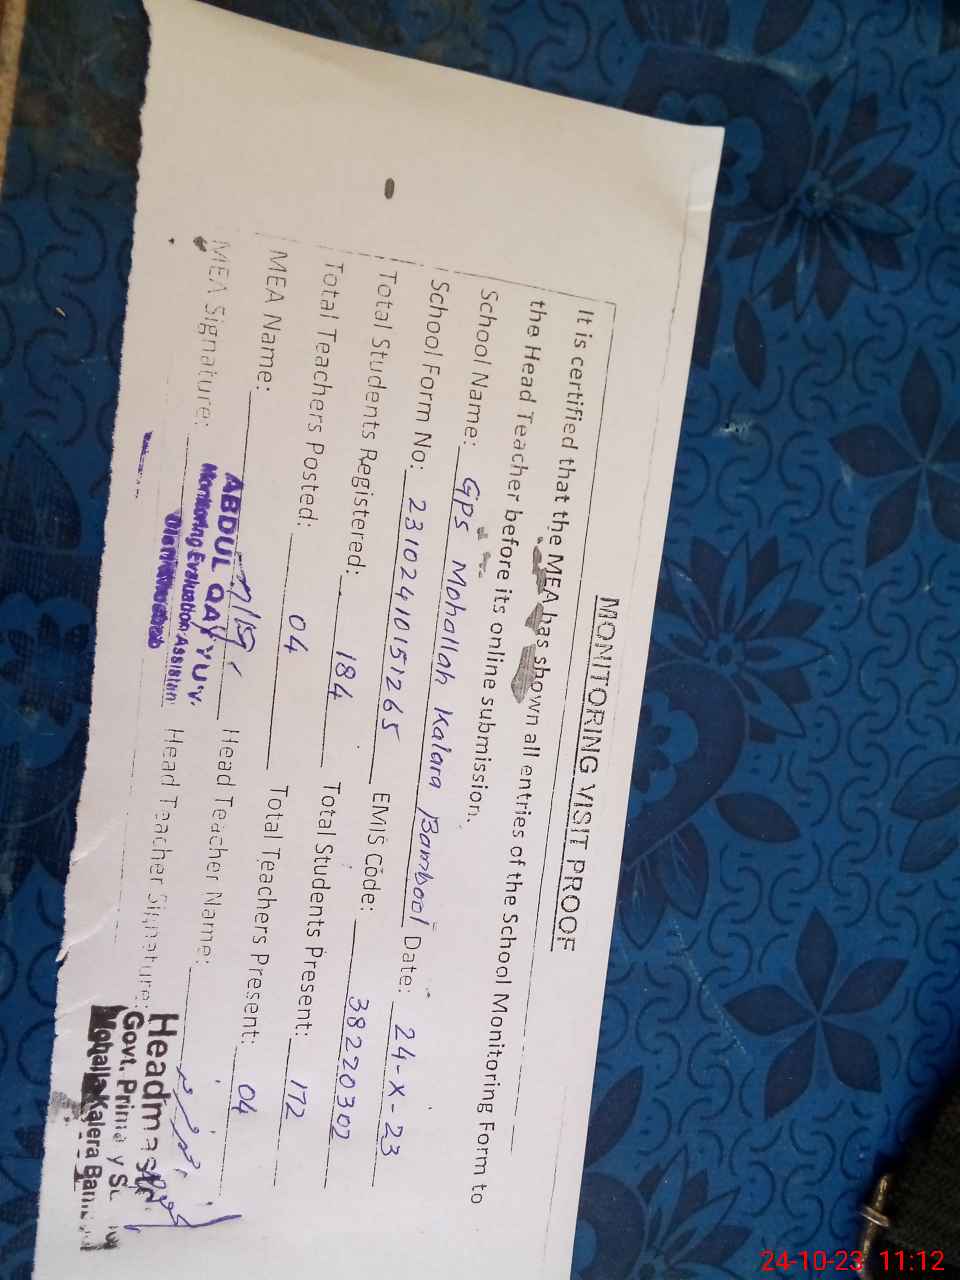 MONITORING VISIT PROOF
It is certified that the MEA has shown all entries of the School Monitoring Form to
the Head Teacher before its online submission.
School Name: Gps Mohallah Kalara Bambool Date: 24-X-23
School Form No: 23102410151265 EMIS Code: 38220302
Total Students Registered: 184 Total Students Present: 172
Total Teachers Posted: 04 Total Teachers Present: 04
MEA Name: Head Teacher Name:
MEA Signature: Head Teacher Signature:
ABDUL QAYYUM
Monitoring Evaluation Assistant
Headmas
Govt. Prima y Sc
Mohalla Kalera Bam
24-10-23 11:12